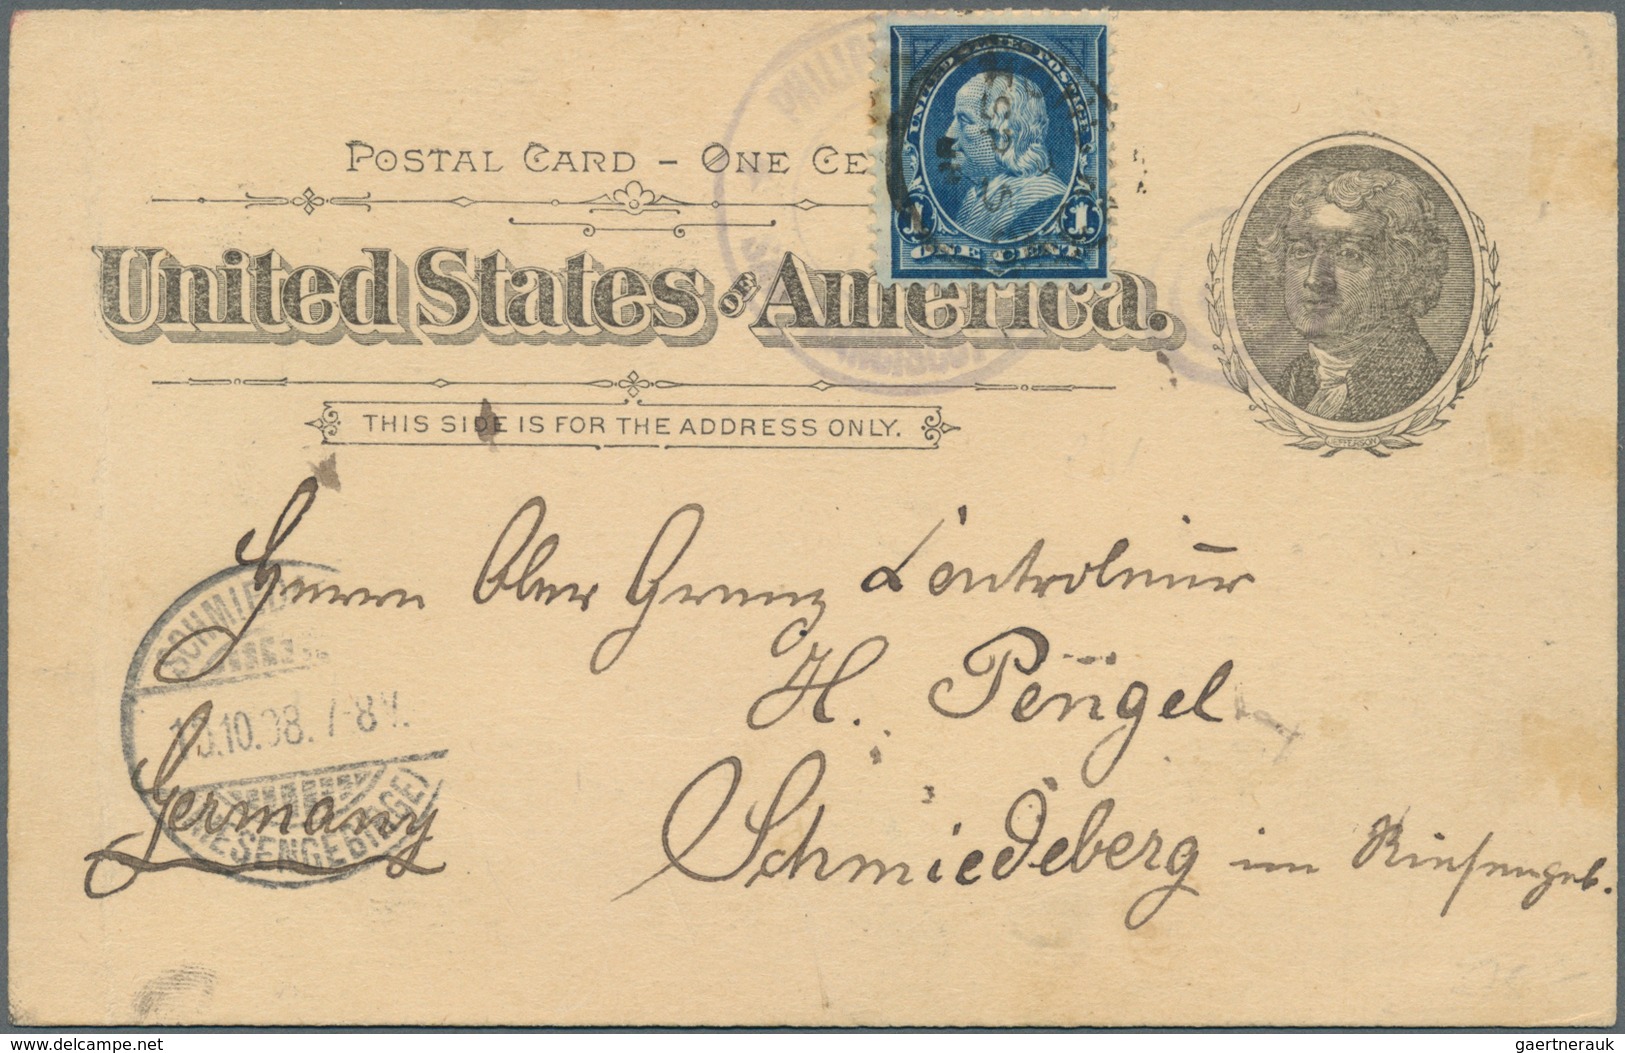 POSTAL CARD – ONE CE
UNITED STATES POSTAGE
1 1
ONE CENT
United States OF America.
JEFFERSON
THIS SIDE IS FOR THE ADDRESS ONLY.
Herrn Ober Grenz Controleur
H. Pengel
Schmiedeberg im Riesengeb.
Germany
SCHMIED
.10.98. 7-8V.
RIESENGEBIRGE
gaertnerauk